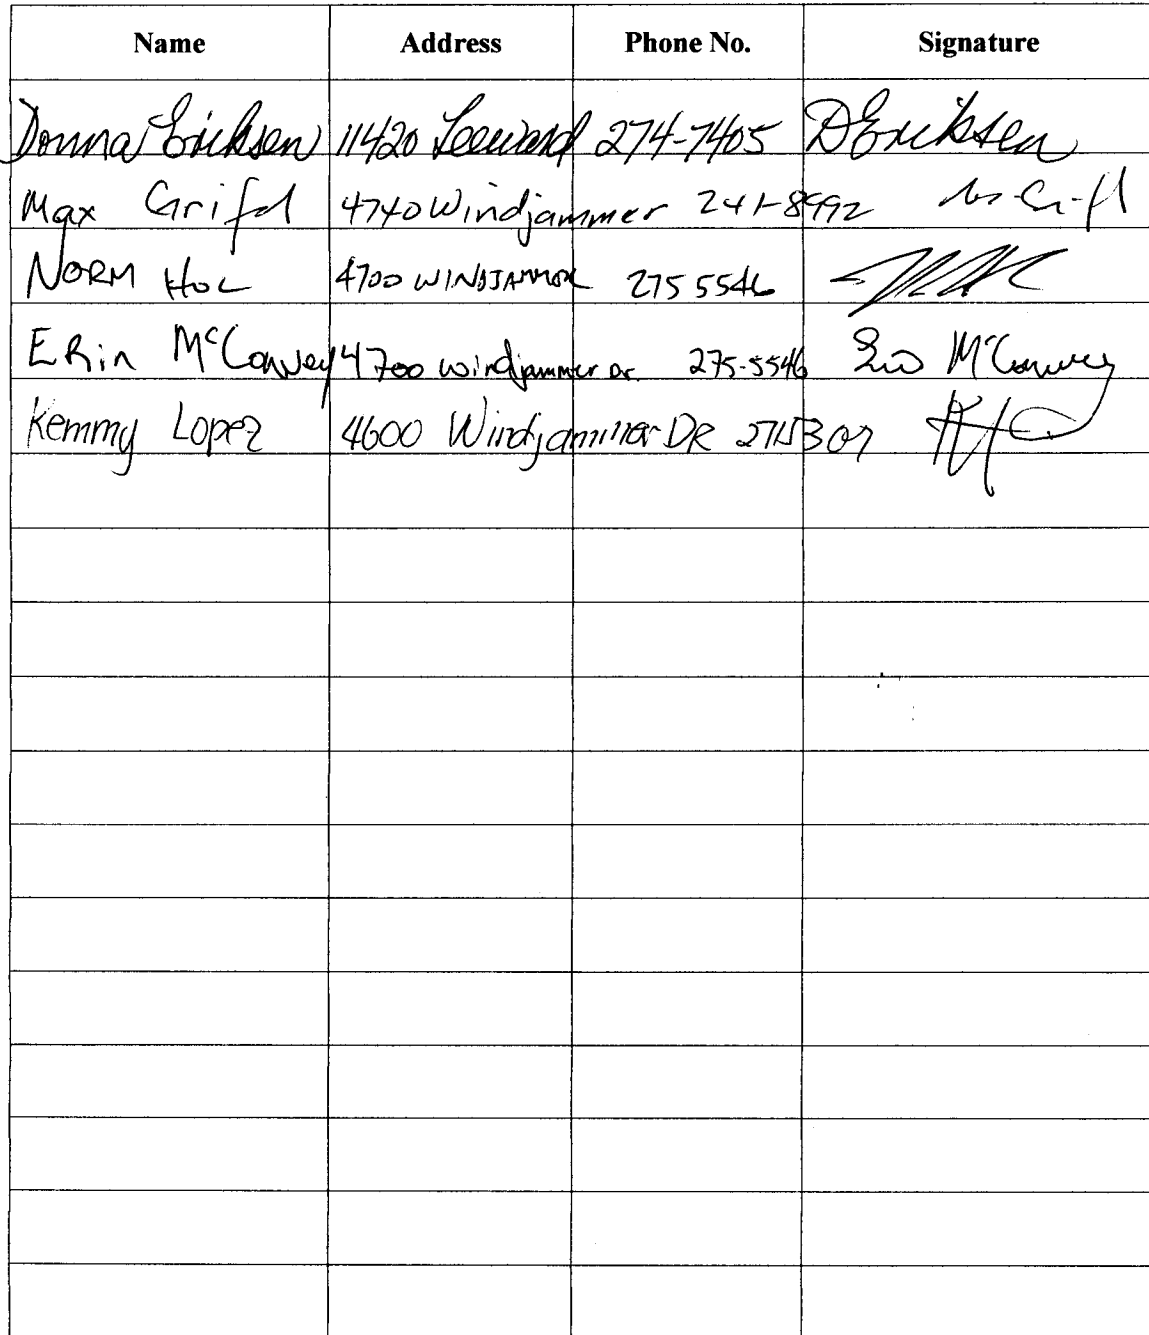 Name Address Phone No. Signature
Donna Ericksen 11420 Leeward 274-7405 DEricksen
Max Grifol 4740 Windjammer 241-8992
NORM HOL 4700 WINDJAMMER 275 5546
ERin McConvey 4700 windjammer Dr. 275-5546 McConvey
Kemmy Lopez 4600 Windjammer DR